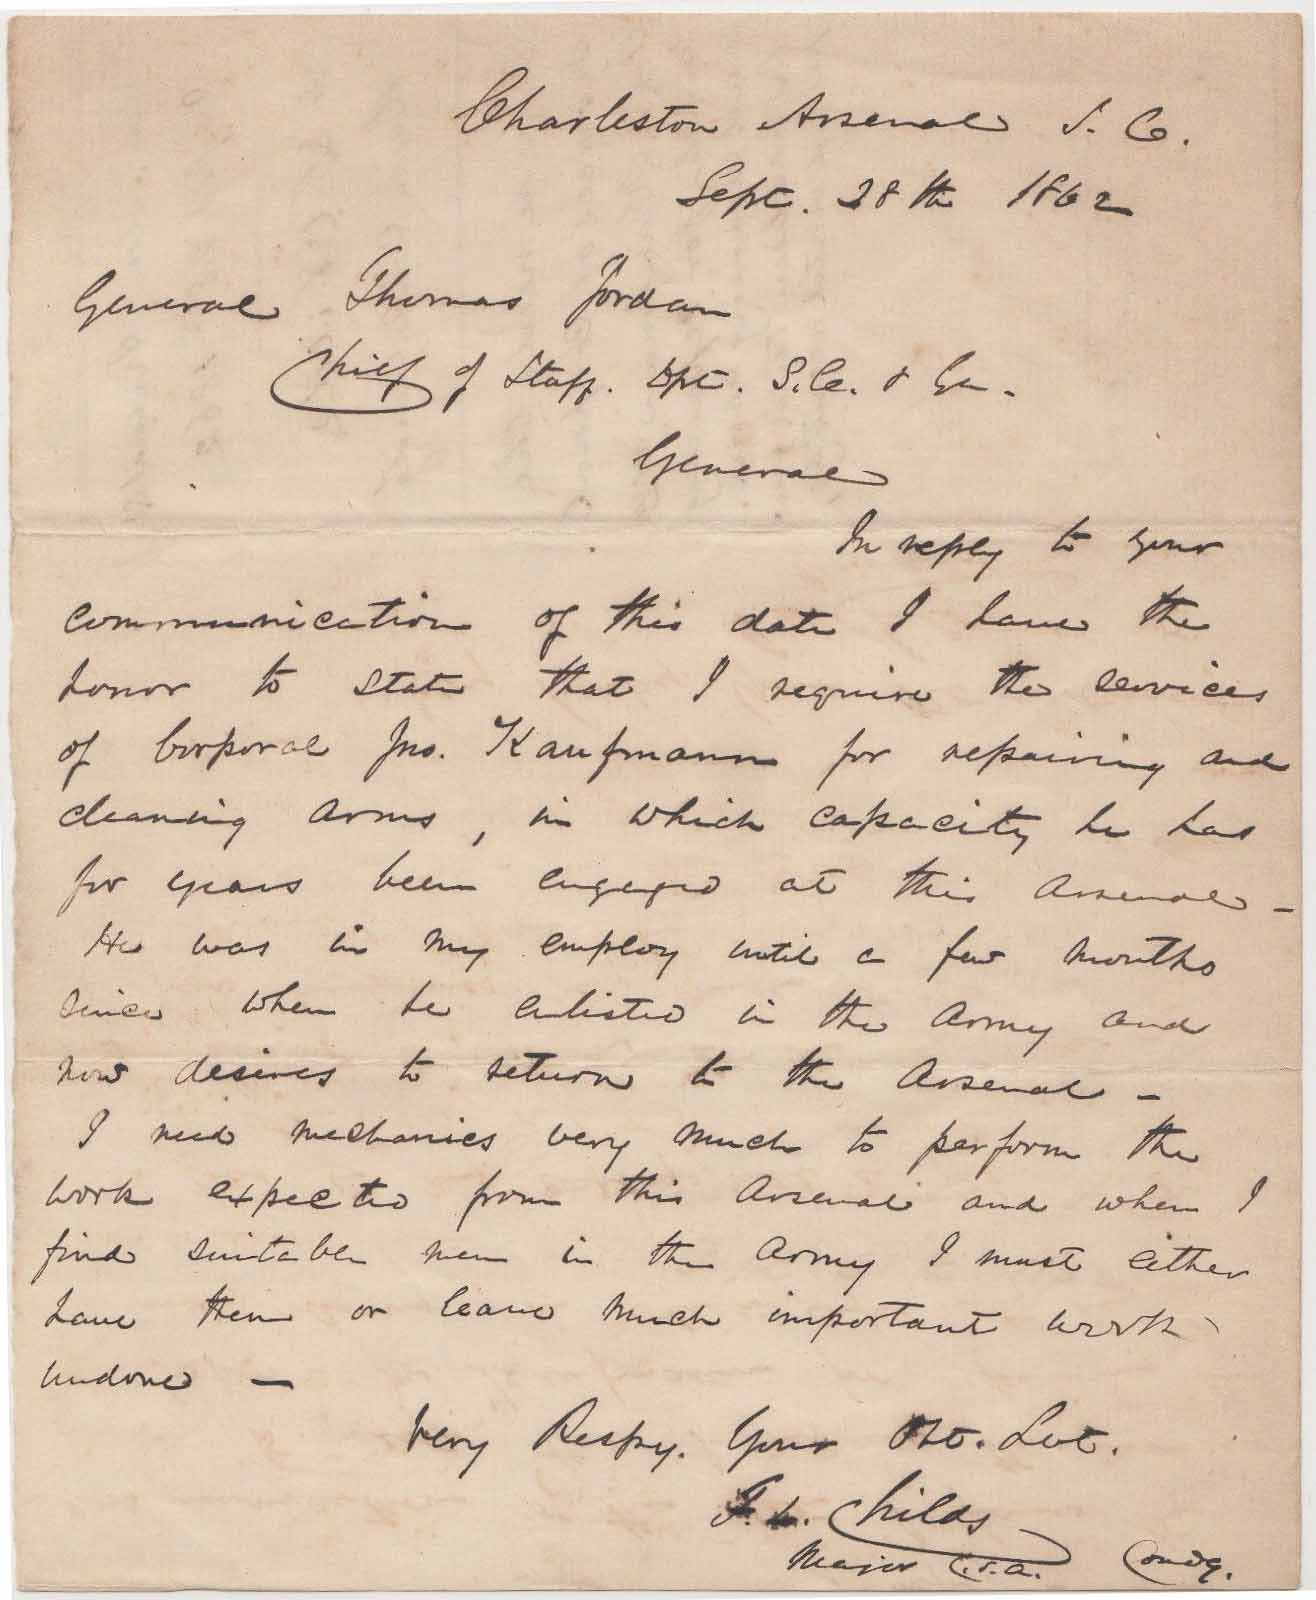 Charleston Arsenal S. C.
Sept. 28th 1862
General Thomas Jordan
Chief of Staff. Dpt. S.C. & Ga.
General
In reply to your
communication of this date I have the
honor to state that I require the services
of Corporal Jno. Kaufmann for repairing and
cleaning arms, in which capacity he has
for years been engaged at this Arsenal –
He was in my employ until a few months
since when he enlisted in the Army and
now desires to return to the Arsenal –
I need mechanics very much to perform the
work expected from this Arsenal and when I
find suitable men in the Army I must either
have them or leave much important work
undone –
Very Respy. Your Obt. Svt.
F. L. Childs
Major C.S.A. Comdg.